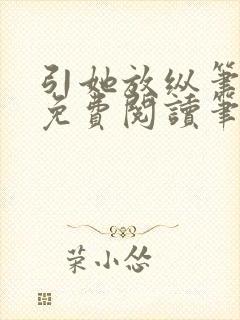 引她放纵筆
免費閱讀筆
菜小怂